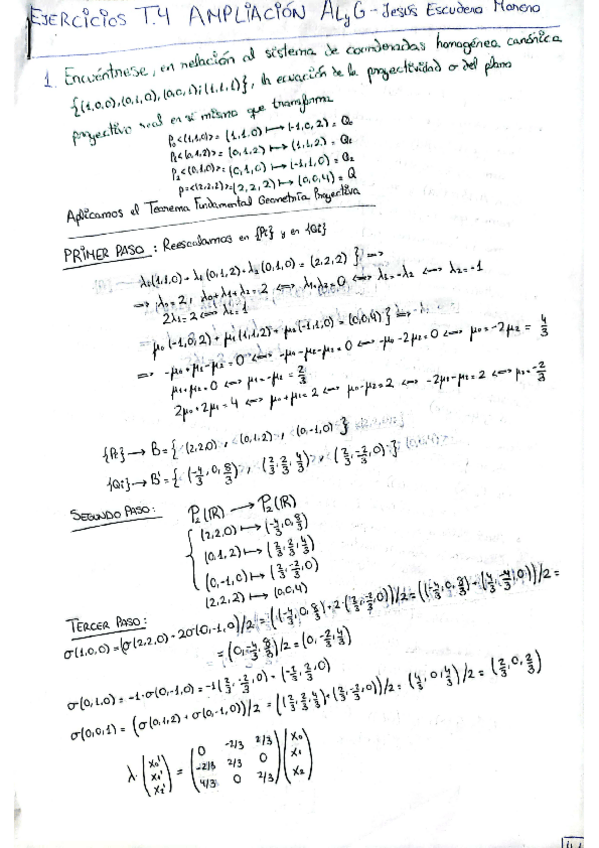 EJERCICIOS T.4 AMPLIACIÓN ALyG - Jesús Escudero Moreno
1. Encuéntrese, en relación al sistema de coordenadas homogénea canónica
{(1,0,0),(0,1,0),(0,0,1);(1,1,1)}, la ecuación de la proyectividad σ del plano
proyectivo real en sí mismo que transforma
P₀<(1,1,0)> = (1,1,0) ↦ (-1,0,2) = Q₀
P₁<(0,1,2)> = (0,1,2) ↦ (1,1,2) = Q₁
P₂<(0,1,0)> = (0,1,0) ↦ (-1,1,0) = Q₂
P=<(2,2,2)> = (2,2,2) ↦ (0,0,4) = Q
Aplicamos el Teorema Fundamental Geometría Proyectiva
PRIMER PASO: Reescalamos en {Pi} y en {Qi}
λ₀(1,1,0) + λ₁(0,1,2) + λ₂(0,1,0) = (2,2,2) } ⇒
⇒ λ₀=2, λ₀+λ₁+λ₂=2 ⟺ λ₁+λ₂=0 ⟺ λ₁=-λ₂ ⟺ λ₂=-1
2λ₁=2 ⟺ λ₁=1
μ₀(-1,0,2) + μ₁(1,1,2) + μ₂(-1,1,0) = (0,0,4) } ⇒
⇒ -μ₀+μ₁-μ₂=0 ⟺ -μ₀-μ₂-μ₂=0 ⟺ -μ₀-2μ₂=0 ⟺ μ₀=-2μ₂ = 4/3
μ₁+μ₂=0 ⟺ μ₁=-μ₂ = 2/3
2μ₀+2μ₁=4 ⟺ μ₀+μ₁=2 ⟺ μ₀-μ₂=2 ⟺ -2μ₂-μ₂=2 ⟺ μ₂=-2/3
{Pi} → B = { (2,2,0), (0,1,2), (0,-1,0) }
{Qi} → B' = { (-4/3,0,8/3), (2/3,2/3,4/3), (2/3,-2/3,0) }
SEGUNDO PASO: P₂(ℝ) → P₂(ℝ)
(2,2,0) ↦ (-4/3,0,8/3)
(0,1,2) ↦ (2/3,2/3,4/3)
(0,-1,0) ↦ (2/3,-2/3,0)
(2,2,2) ↦ (0,0,4)
TERCER PASO:
σ(1,0,0) = (σ(2,2,0) + 2σ(0,-1,0))/2 = ((-4/3,0,8/3) + 2·(2/3,-2/3,0))/2 = ((-4/3,0,8/3) + (4/3,-4/3,0))/2 =
= (0,-4/3,8/3)/2 = (0,-2/3,4/3)
σ(0,1,0) = -1·σ(0,-1,0) = -1(2/3,-2/3,0) = (-2/3,2/3,0)
σ(0,0,1) = (σ(0,1,2) + σ(0,-1,0))/2 = ((2/3,2/3,4/3) + (2/3,-2/3,0))/2 = (4/3,0,4/3)/2 = (2/3,0,2/3)
λ·(x₀' x₁' x₂') = (0 -2/3 2/3
-2/3 2/3 0
4/3 0 2/3) (x₀ x₁ x₂)